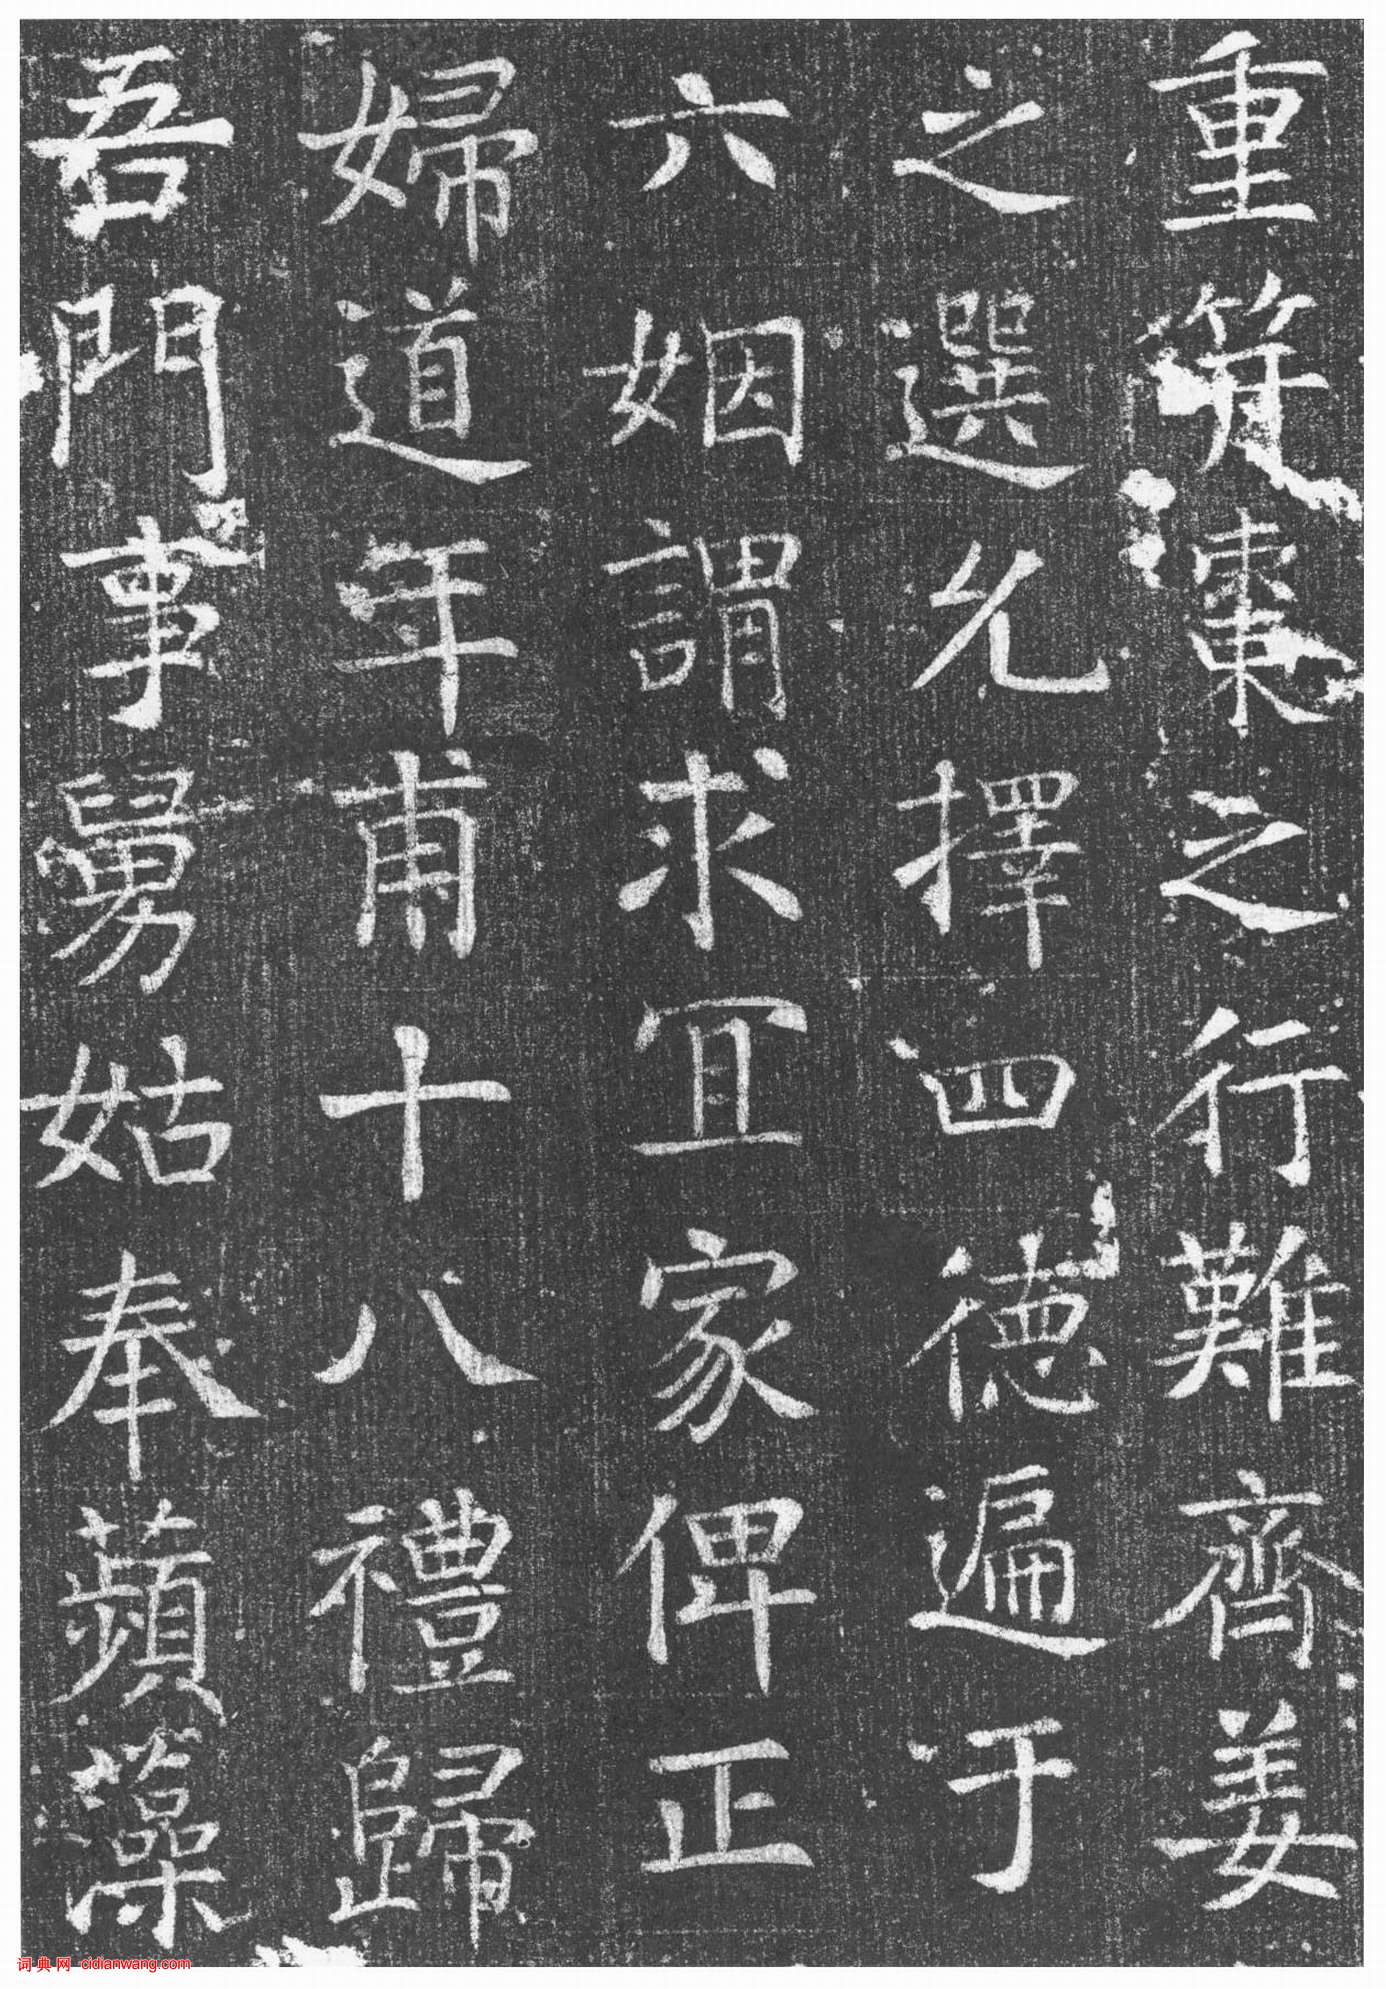 重符棗之行難齊姜
之選允擇四德遍于
六姻謂求宜家俾正
婦道年甫十八禮歸
吾門事舅姑奉蘋藻
词典网 cidianwang.com